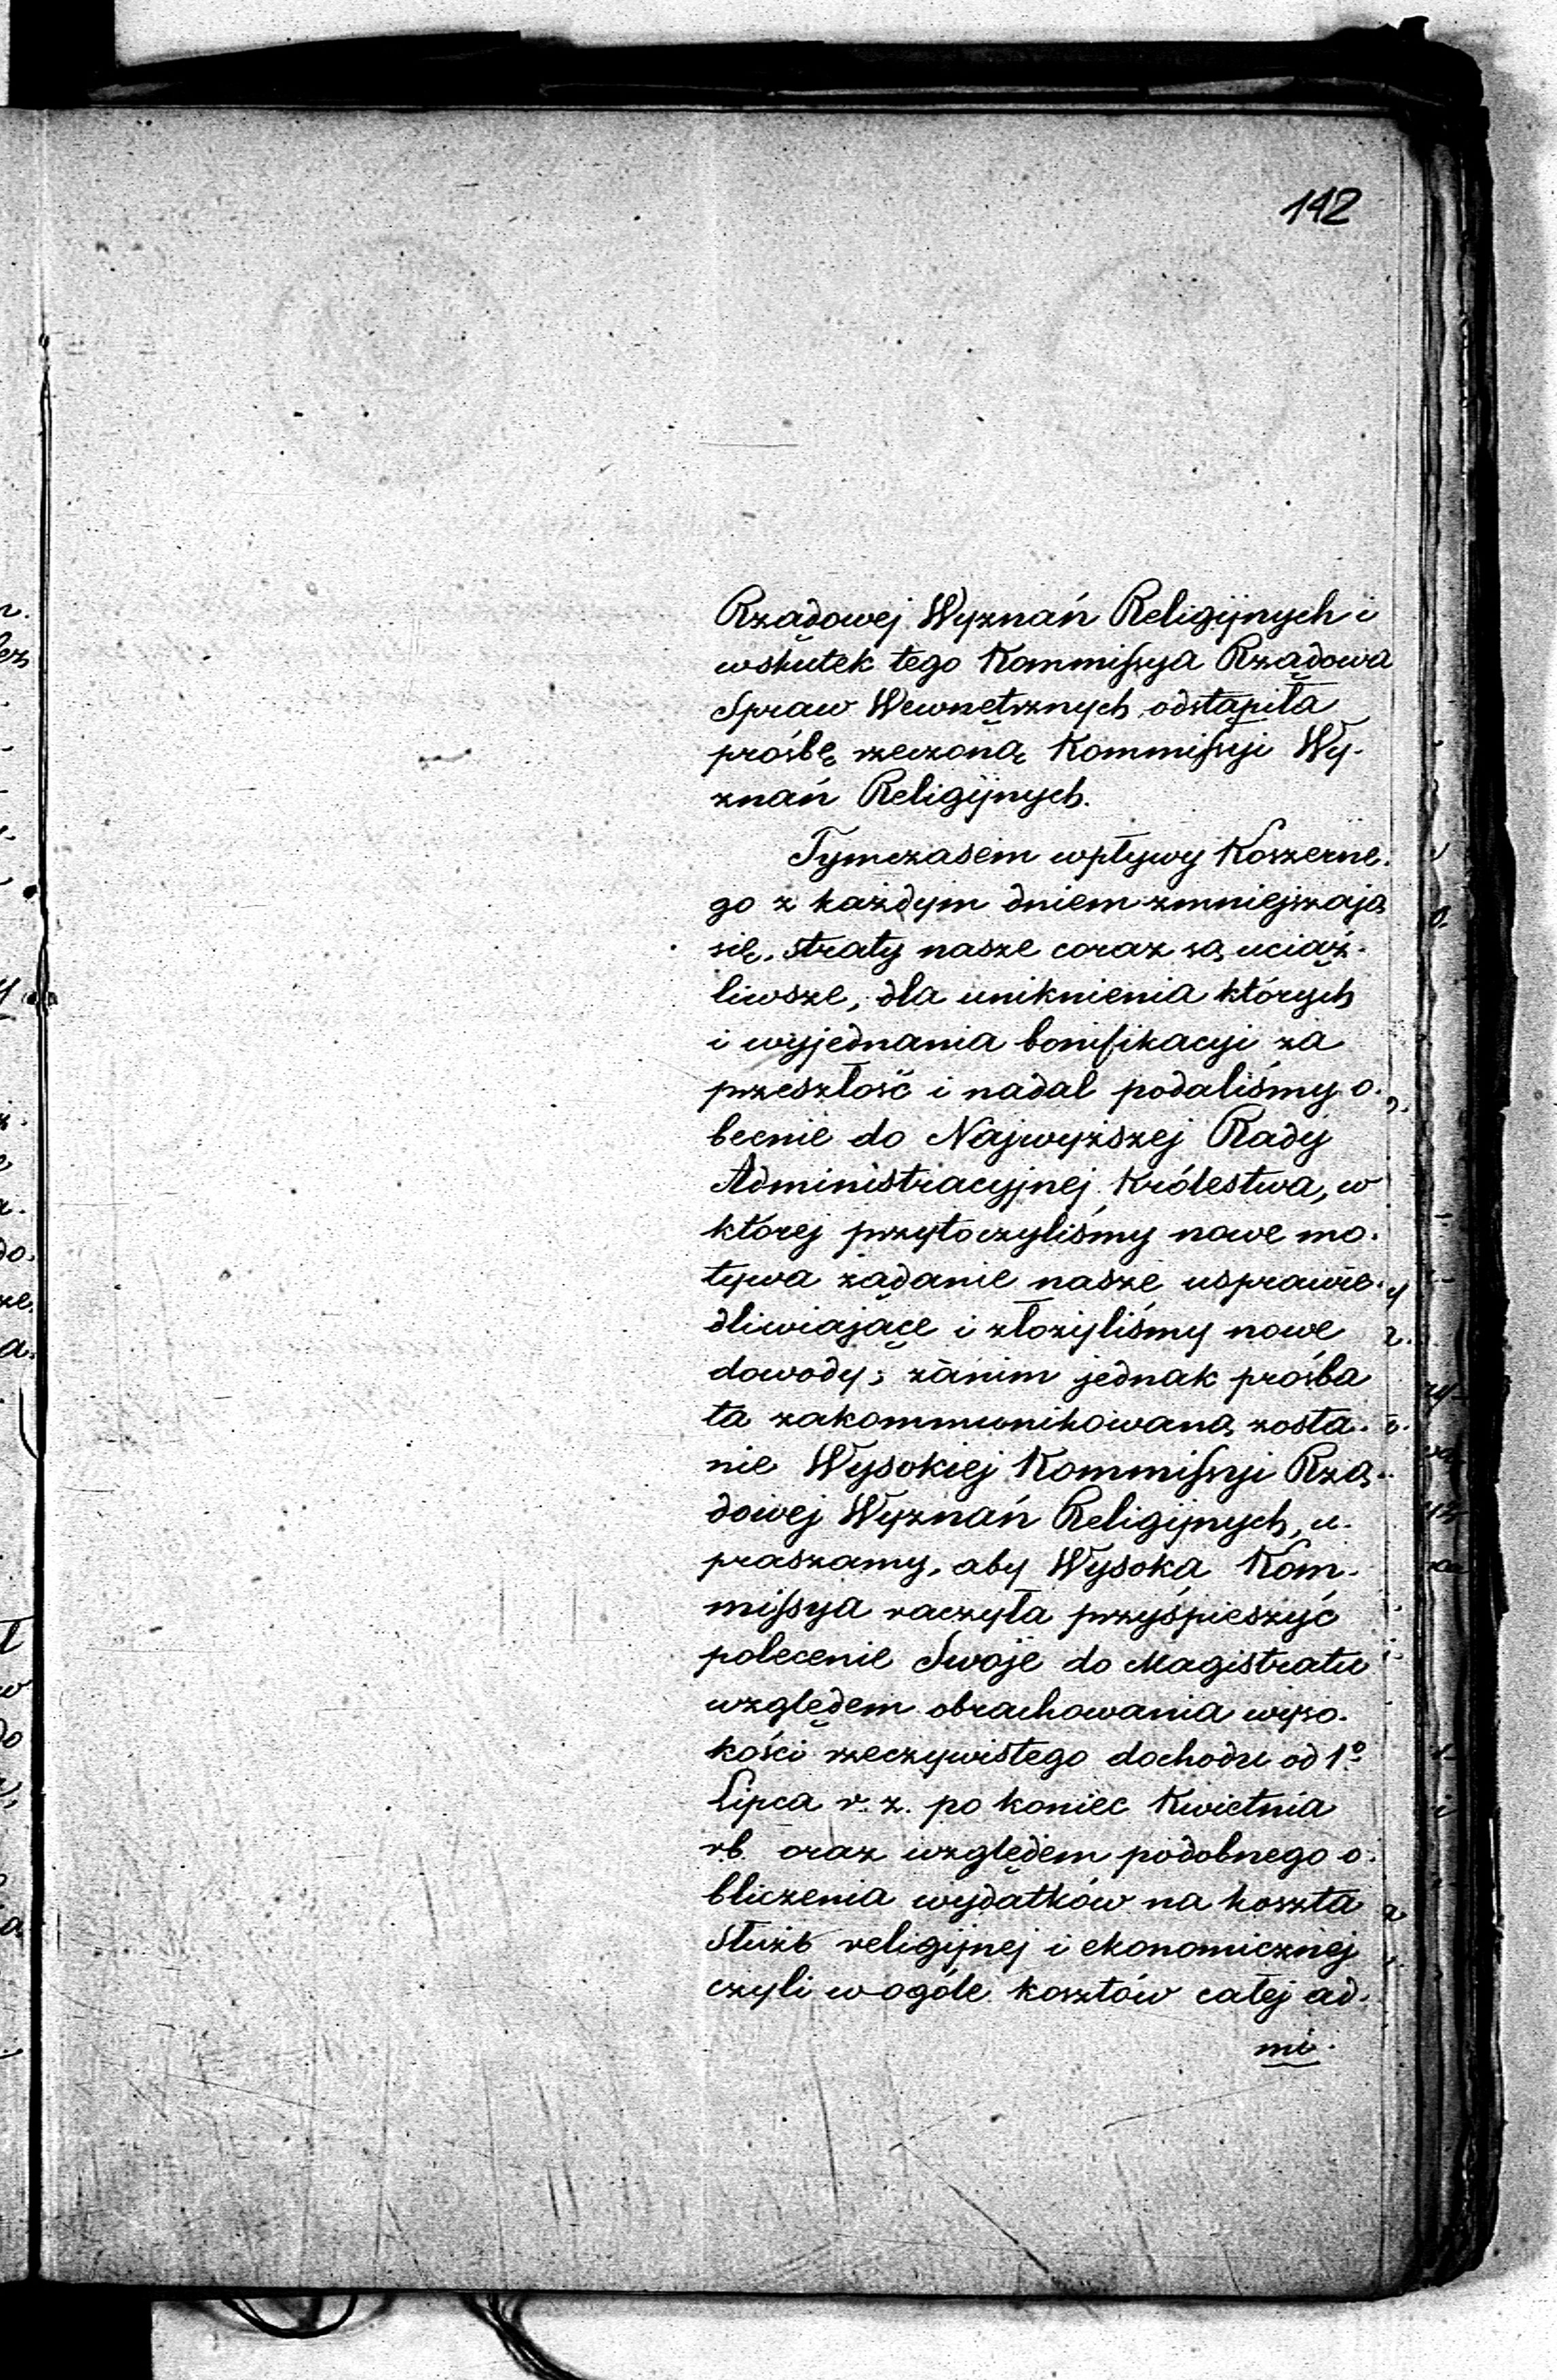 142
Rządowej Wyznań Religijnych i
wskutek tego Kommissya Rządowa
Spraw Wewnętrznych odstąpiła
prośbę rzeczoną Kommissyi Wy-
znań Religijnych.
Tymczasem wpływy Koszerne-
go z każdym dniem zmniejszają
się, straty nasze coraz są uciąż-
liwsze, dla uniknienia których
i wyjednania bonifikacyi za
przeszłość i nadal podaliśmy o-
becnie do Najwyższej Rady
Administracyjnej Królestwa, w
której przytoczyliśmy nowe mo-
tywa żądanie nasze usprawie-
dliwiające i złożyliśmy nowe
dowody; zanim jednak prośba
ta zakommunikowaną zosta-
nie Wysokiej Kommissyi Rzą-
dowej Wyznań Religijnych, u-
praszamy, aby Wysoka Kom-
missya raczyła przyśpieszyć
polecenie Swoje do Magistratu
względem obrachowania wyso-
kości rzeczywistego dochodu od 1º
Lipca r. z. po koniec Kwietnia
rb. oraz względem podobnego o-
bliczenia wydatków na koszta
służb religijnej i ekonomicznej
czyli wogóle kosztów całej ad-
mi-